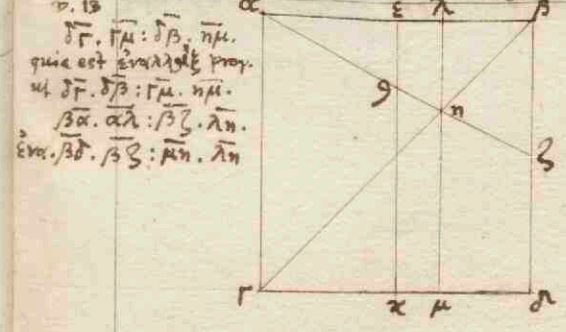 p. 13
δγ. γμ : δβ. ημ.
quia est ἐναλλὰξ prop.
ut δγ. δβ : γμ. ημ.
βα. αλ : βζ. λη.
ἐνα. βδ. βζ : μη. λη
α ε λ β
θ η
ζ
γ κ μ δ